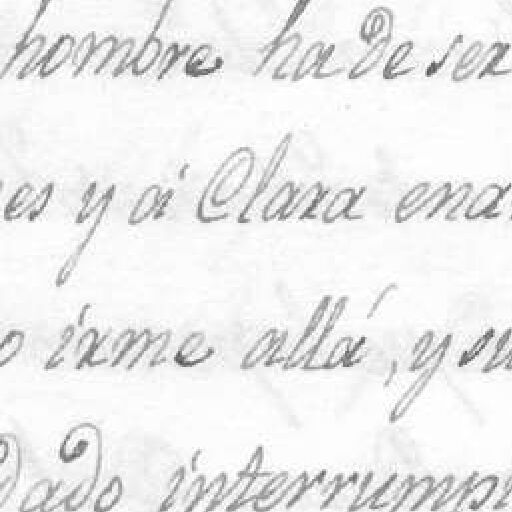 hombre ha de ser
es y á Clara ena
o irme allá, y su
dado interrump